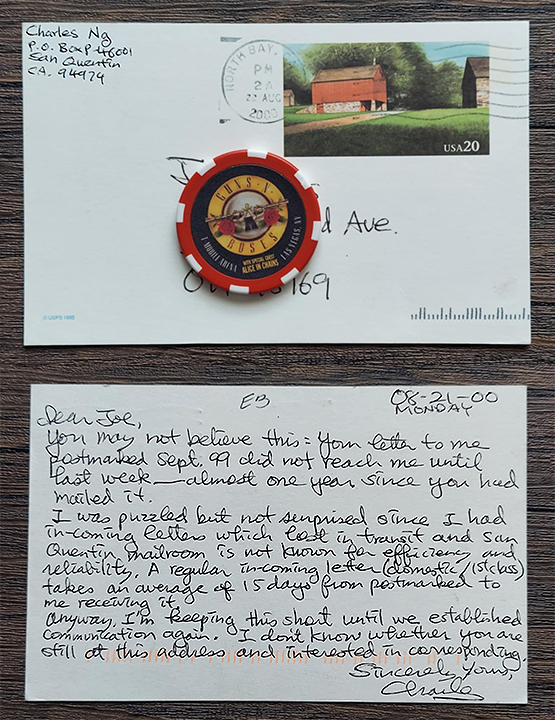 Charles Ng
P.O. Box P-46001
San Quentin
CA. 94974
NORTH BAY,
PM
22 AUG
2000
USA20
d Ave.
169
GUNS N' ROSES
T-MOBILE ARENA
LAS VEGAS, NV
WITH SPECIAL GUEST
ALICE IN CHAINS
© USPS 1995
EB
08-21-00
MONDAY
Dear Joe,
You may not believe this: Your letter to me
postmarked Sept. 99 did not reach me until
last week — almost one year since you had
mailed it.
I was puzzled but not surprised since I had
in-coming letters which lost in transit and San
Quentin mailroom is not known for efficiency and
reliability. A regular in-coming letter (domestic/1st class)
takes an average of 15 days from postmarked to
me receiving it.
Anyway, I'm keeping this short until we established
communication again. I don't know whether you are
still at this address and interested in corresponding.
Sincerely Yours,
Charles